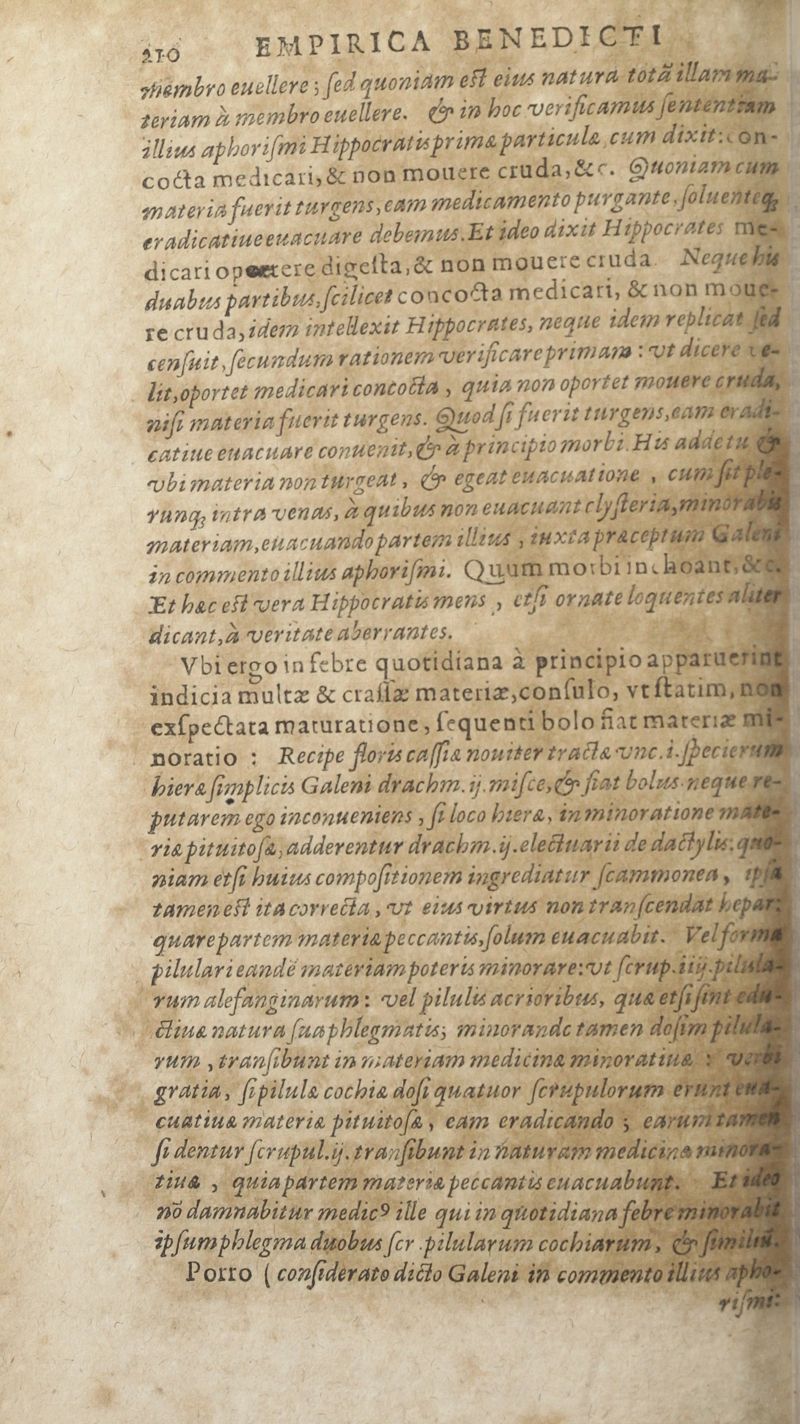 210 EMPIRICA BENEDICTI
membro euellere; sed quoniam est eius natura totā illam ma-
teriam à membro euellere. & in hoc verificamus sententiam
illius aphorismi Hippocratis primæ particulæ, cum dixit: con-
cocta medicari, & non mouere cruda, &c. Quoniam cum
materia fuerit turgens, eam medicamento purgante, soluenteq;
eradicatiue euacuare debemus. Et ideo dixit Hippocrates me-
dicari oportere digesta, & non mouere cruda. Neque his
duabus partibus, scilicet concocta medicari, & non moue-
re cruda, idem intellexit Hippocrates, neque idem replicat sed
censuit, secundum rationem verificare primam: vt dicere ve-
lit, oportet medicari concocta, quia non oportet mouere cruda,
nisi materia fuerit turgens. Quod si fuerit turgens, eam eradi-
catiue euacuare conuenit, & à principio morbi. His adde tu &
vbi materia non turgeat, & egeat euacuatione, cum sit ple-
runq; intra venas, à quibus non euacuant clysteria, minorabis
materiam, euacuando partem illius, iuxta præceptum Galeni
in commento illius aphorismi. Quum morbi inchoant, &c.
Et hæc est vera Hippocratis mens, etsi ornate loquentes aliter
dicant, à veritate aberrantes.
Vbi ergo in febre quotidiana à principio apparuerint
indicia multæ & crassæ materiæ, consulo, vt statim, non
exspectata maturatione, sequenti bolo fiat materiæ mi-
noratio: Recipe floris cassiæ nouiter tractæ vnc.i. specierum
hieræ simplicis Galeni drachm.ij. misce, & fiat bolus. neque re-
putarem ego inconueniens, si loco hieræ, in minoratione mate-
riæ pituitosæ, adderentur drachm.ij. electuarii de dactylis. quo-
niam etsi huius compositionem ingrediatur scammonea, ipsa
tamen est ita correcta, vt eius virtus non transcendat hepar:
quare partem materiæ peccantis, solum euacuabit. Vel forma
pilulari eandē materiam poteris minorare: vt scrup.iiij. pilula-
rum alefanginarum: vel pilulis acrioribus, quæ etsi sint edu-
ctiuæ natura sua phlegmatis; minorando tamen dosim pilula-
rum, transibunt in materiam medicinæ minoratiuæ: verbi
gratia, si pilulæ cochiæ dosi quatuor scrupulorum erunt eua-
cuatiuæ materiæ pituitosæ, eam eradicando; earum tamen
si dentur scrupul.ij. transibunt in naturam medicinæ minora-
tiuæ, quia partem materiæ peccantis euacuabunt. Et ideo
nō damnabitur medicꝰ ille qui in quotidiana febre minorabit
ipsum phlegma duobus scr. pilularum cochiarum, & similiū.
Porro ( considerato dicto Galeni in commento illius apho-
rismi: